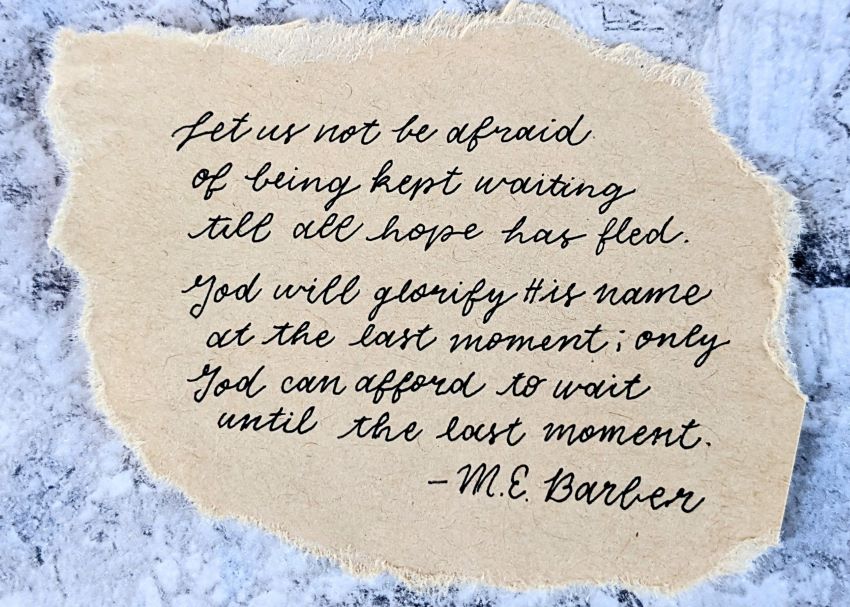 Let us not be afraid
of being kept waiting
till all hope has fled.
God will glorify His name
at the last moment; only
God can afford to wait
until the last moment.
– M.E. Barber